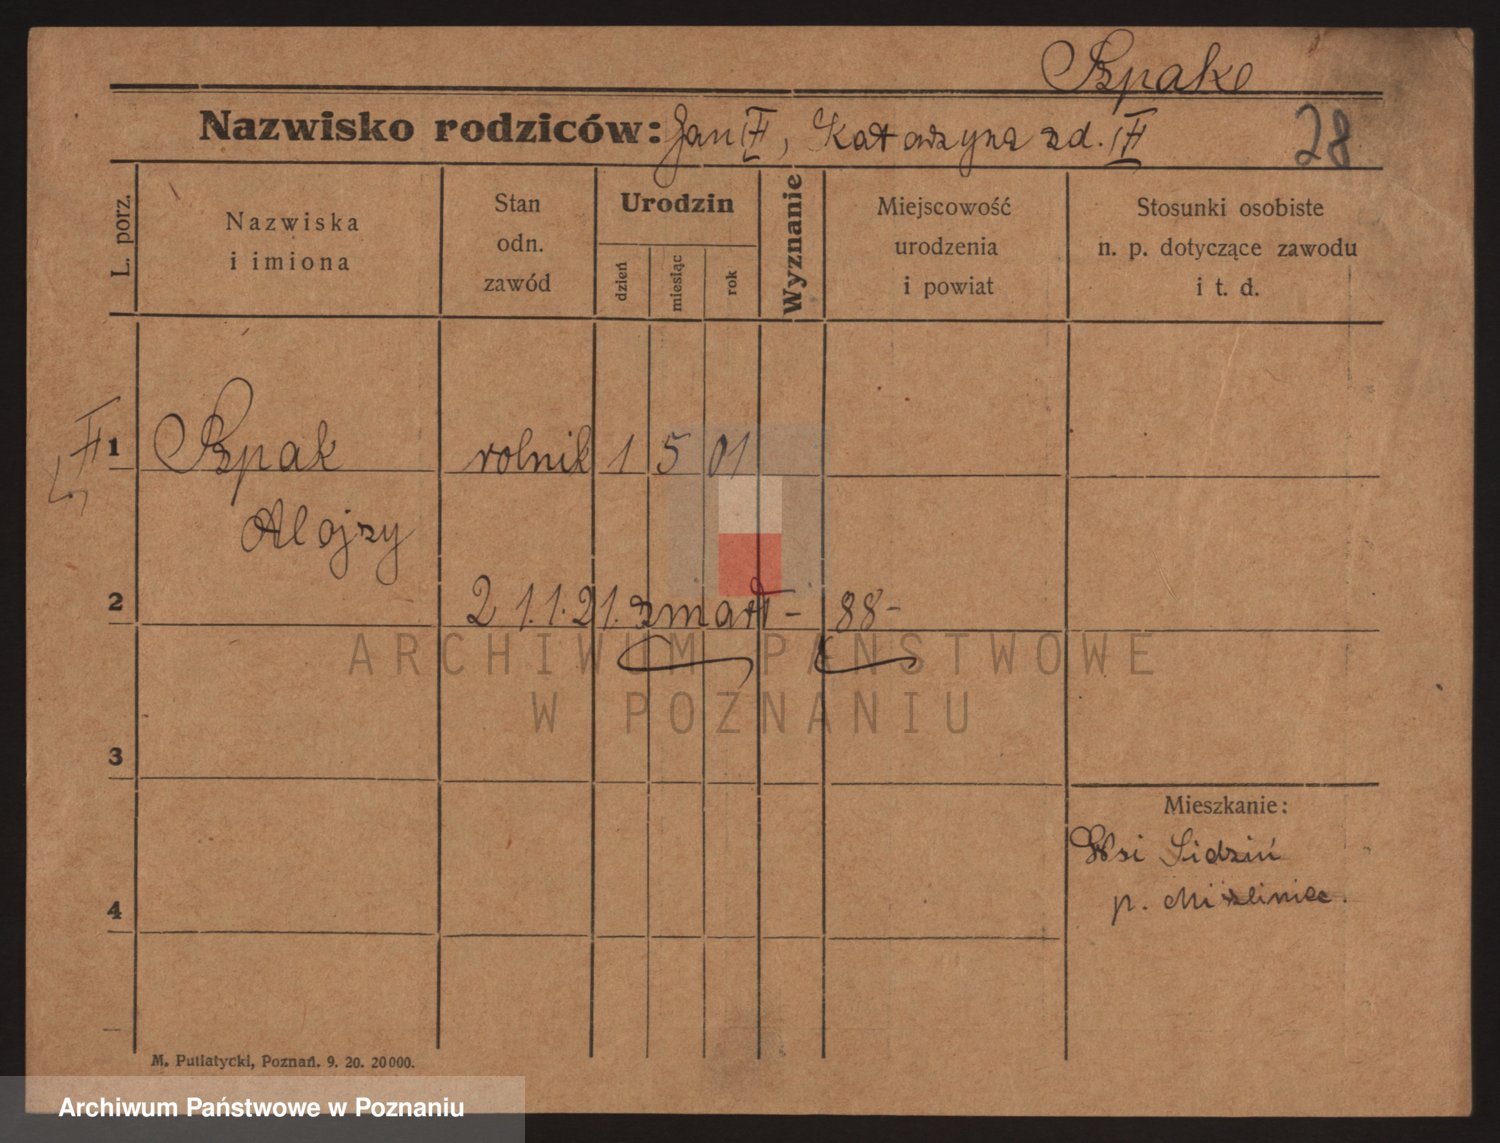 Szpak
Nazwisko rodziców: Jan, Katarzyna zd.
28
L. porz.
Nazwiska
i imiona
Stan
odn.
zawód
Urodzin
dzień
miesiąc
rok
Wyznanie
Miejscowość
urodzenia
i powiat
Stosunki osobiste
n. p. dotyczące zawodu
i t. d.
1 Szpak rolnik 1 5 01
Alojzy
2 21.1.21. zmarł - 88-
ARCHIWUM PAŃSTWOWE
W POZNANIU
3
Mieszkanie:
4
M. Putiatycki, Poznań. 9. 20. 20000.
Archiwum Państwowe w Poznaniu